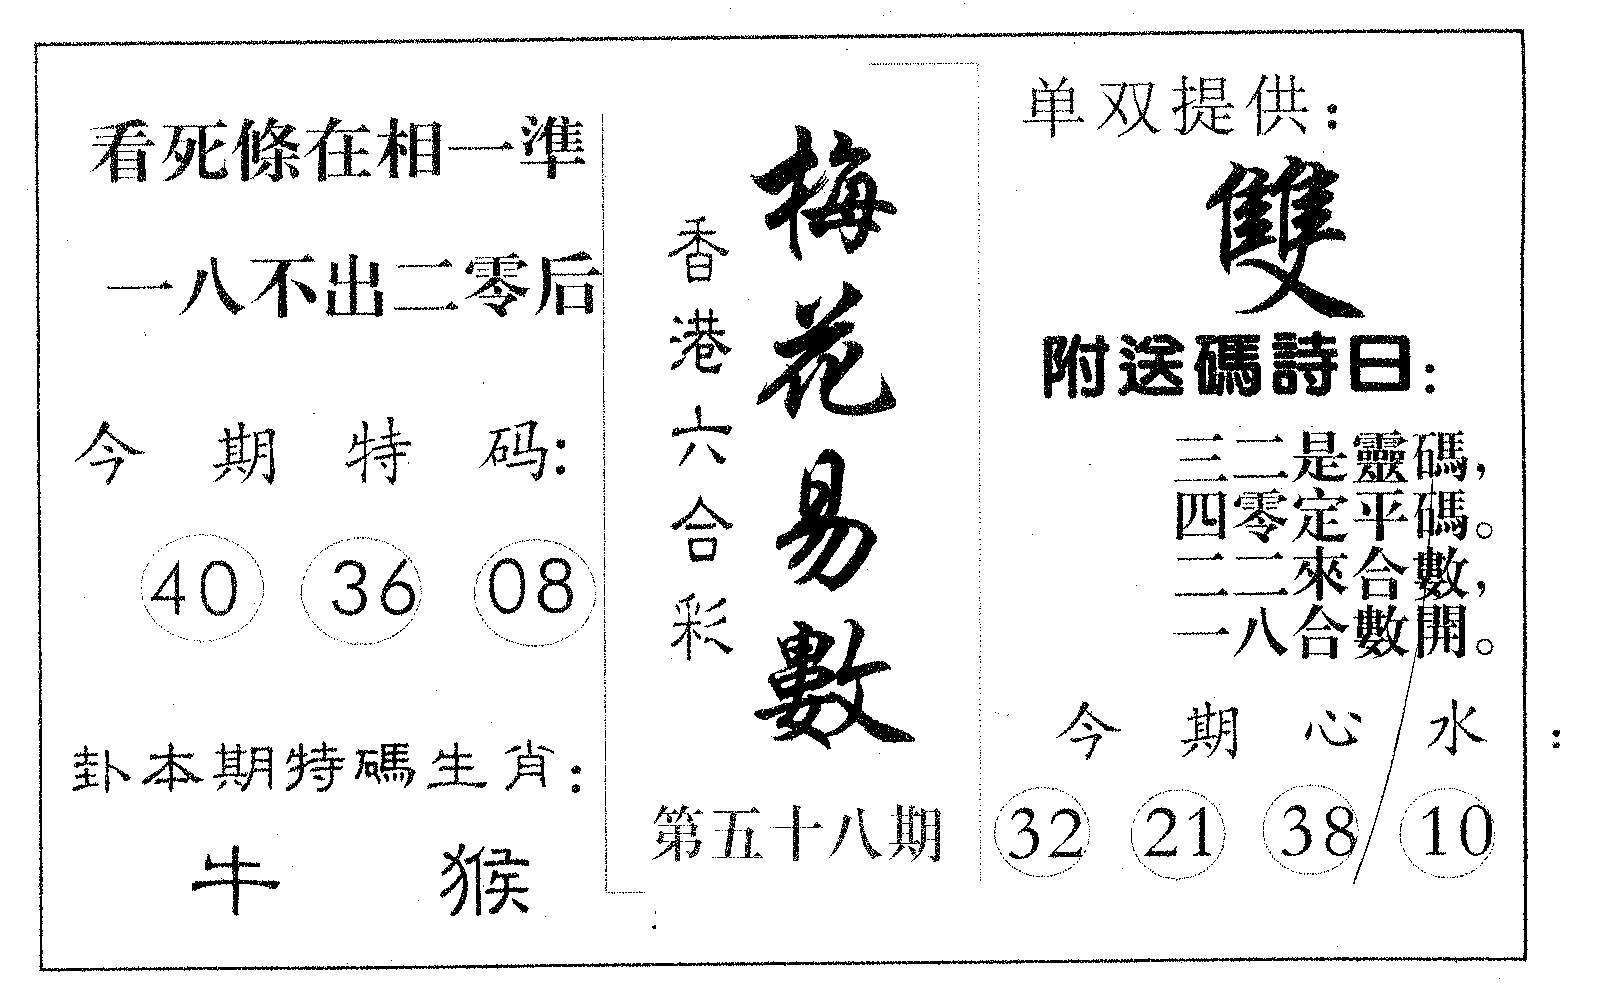 看死條在相一準
一八不出二零后
今期特码:
40 36 08
卦本期特碼生肖:
牛 猴
香港六合彩
梅花易數
第五十八期
单双提供:
雙
附送碼詩曰:
三二是靈碼,
四零定平碼。
二二來合數,
一八合數開。
今期心水:
32 21 38 10